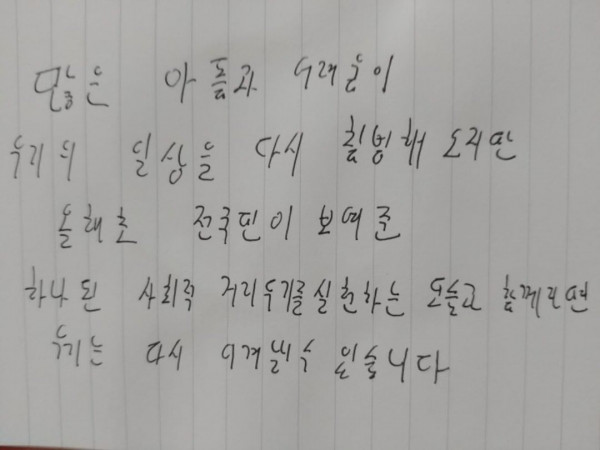 많은 아픔과 우려들이
우리의 일상을 다시 침범해 오지만
올해초 전국민이 보여준
하나된 사회적 거리두기를 실천하는 모습과 함께라면
우리는 다시 이겨낼 수 있습니다